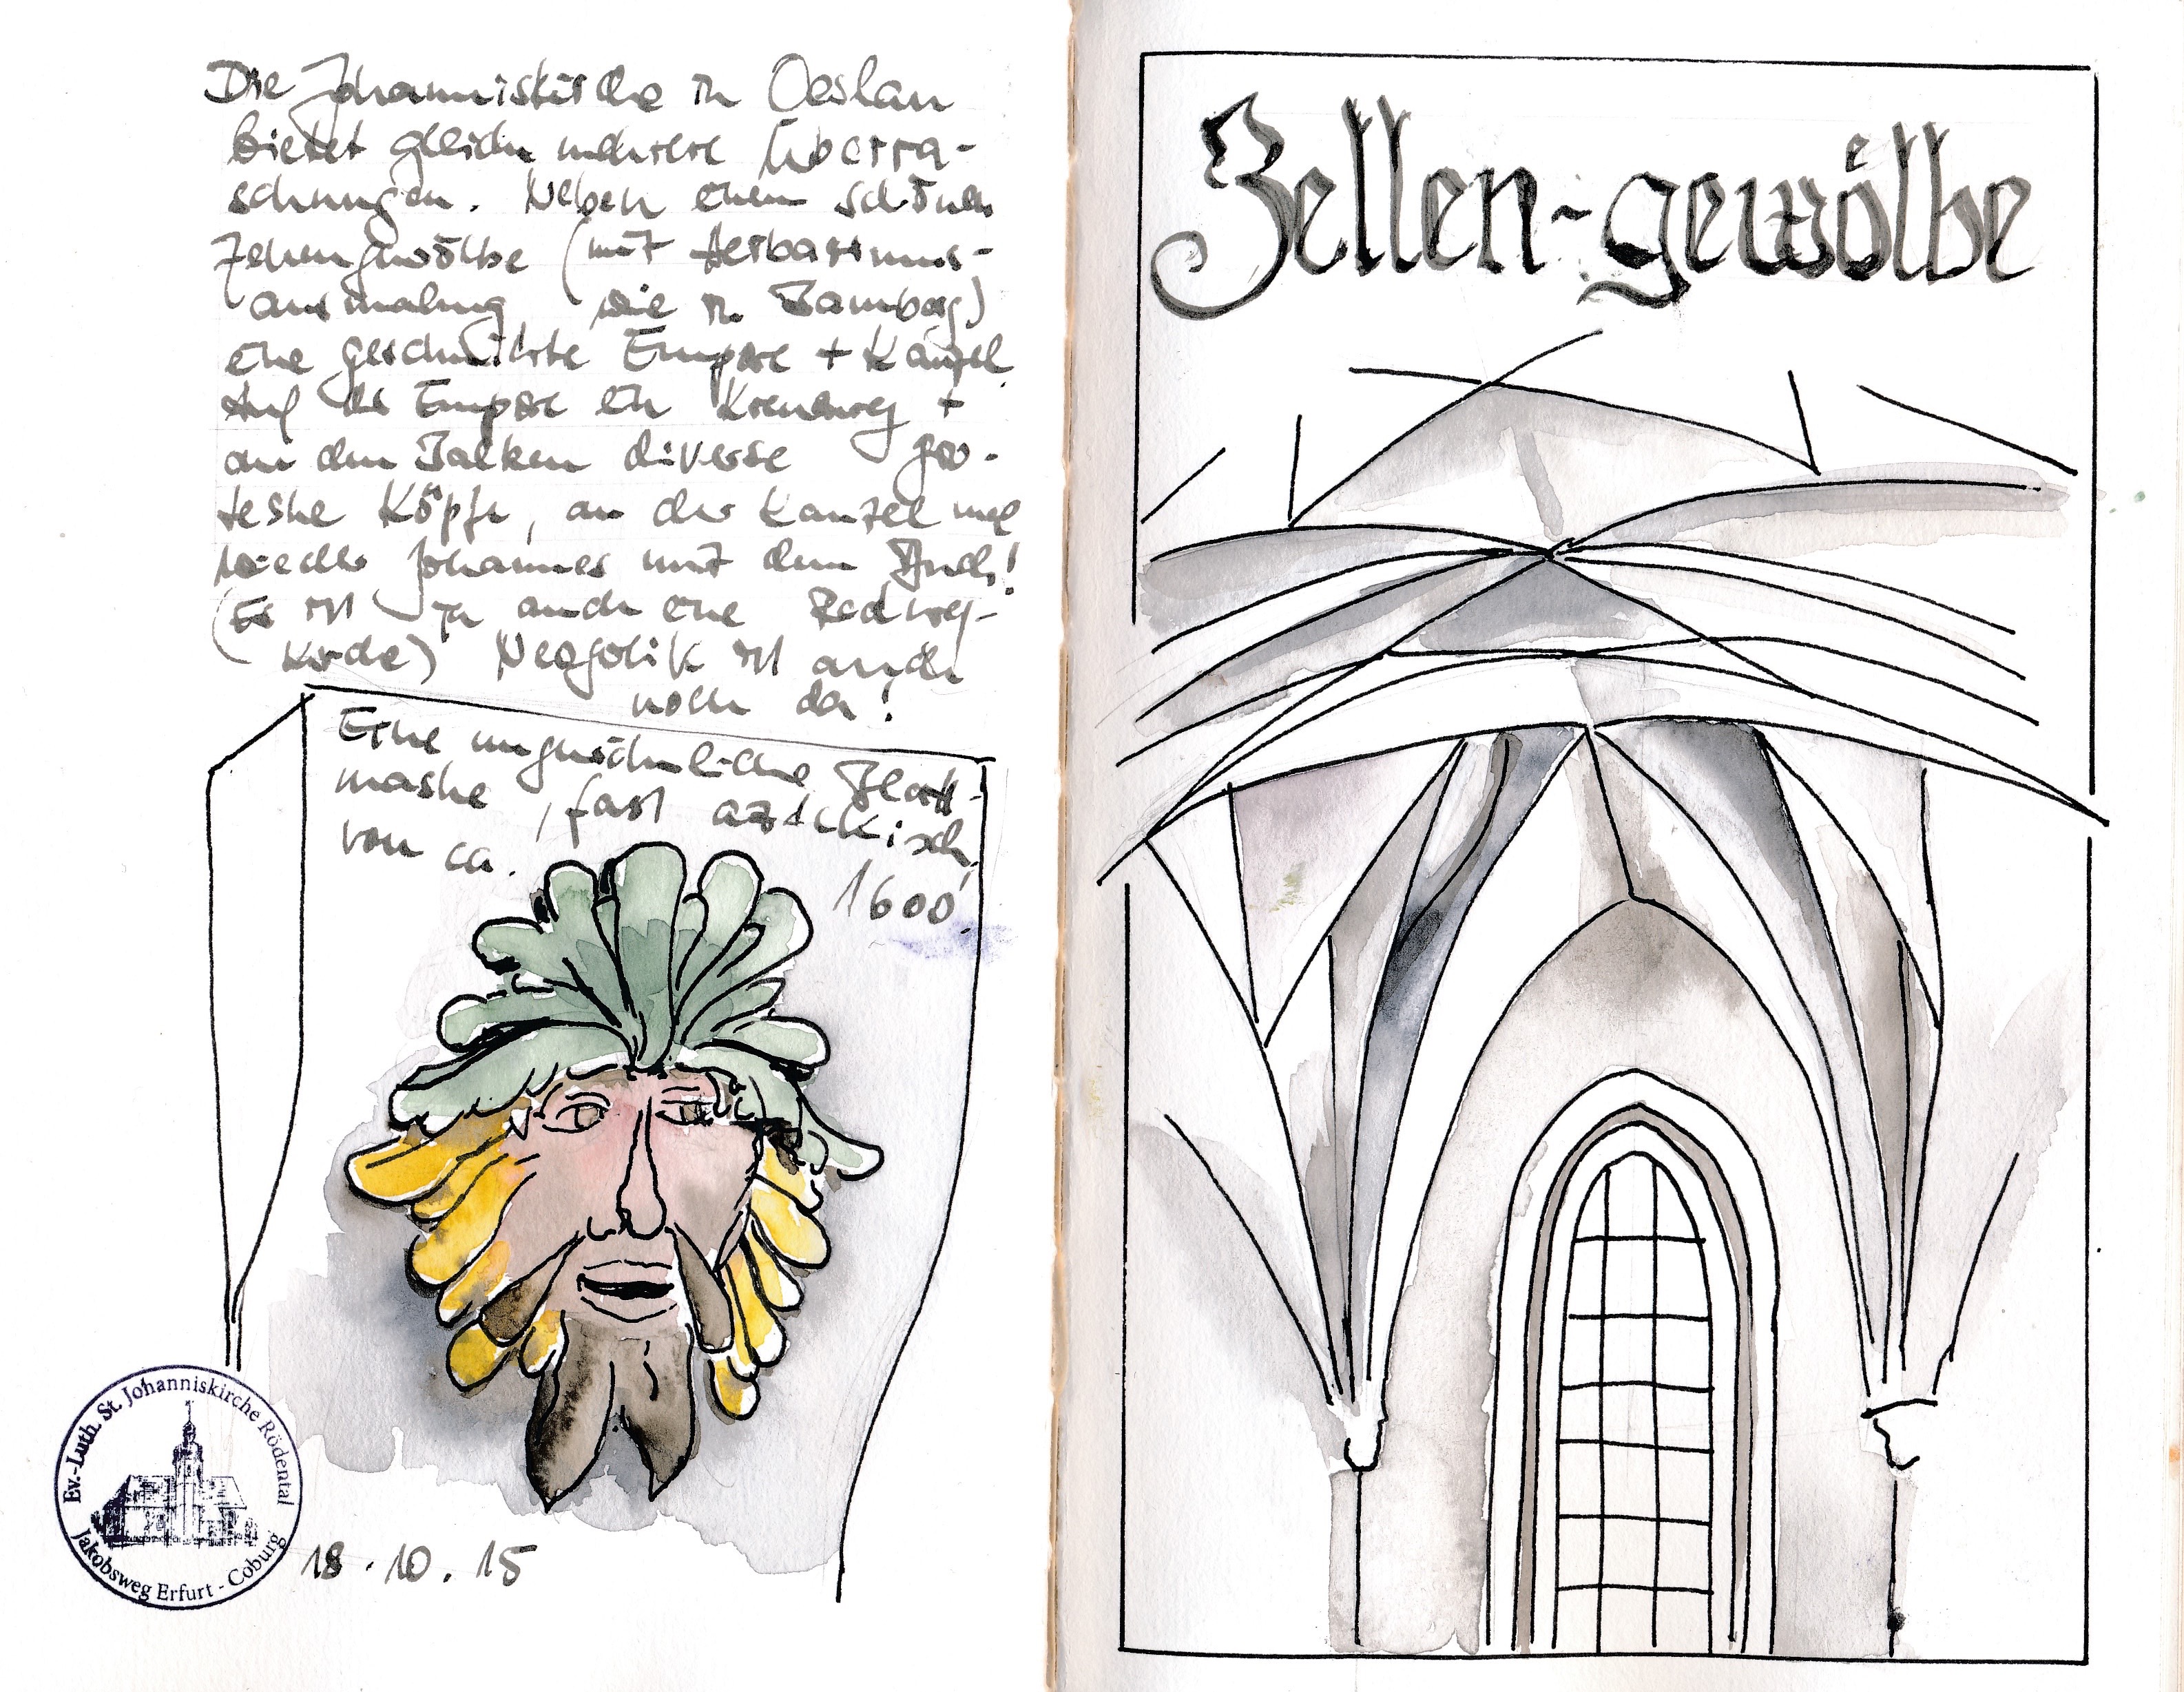 Die Johanniskirche in Oeslau
bietet gleich mehrere Überra-
schungen. Neben einem schönen
Zellengewölbe (mit Herbariums-
ausmalung wie in Bamberg)
eine geschnitzte Empore + Kanzel.
Auf der Empore ein Kreuzweg +
an den Balken diverse gro-
teske Köpfe, an der Kanzel mal
wieder Johannes mit dem Buch!
(Es ist ja auch eine Radweg-
kirche) Neogotik ist auch
noch da!
Eine ungewöhnliche Blatt-
maske, fast aztekisch,
von ca. 1600!
Ev.-Luth. St. Johanniskirche Rödental
Jakobsweg Erfurt - Coburg
18.10.15
Zellen-gewölbe